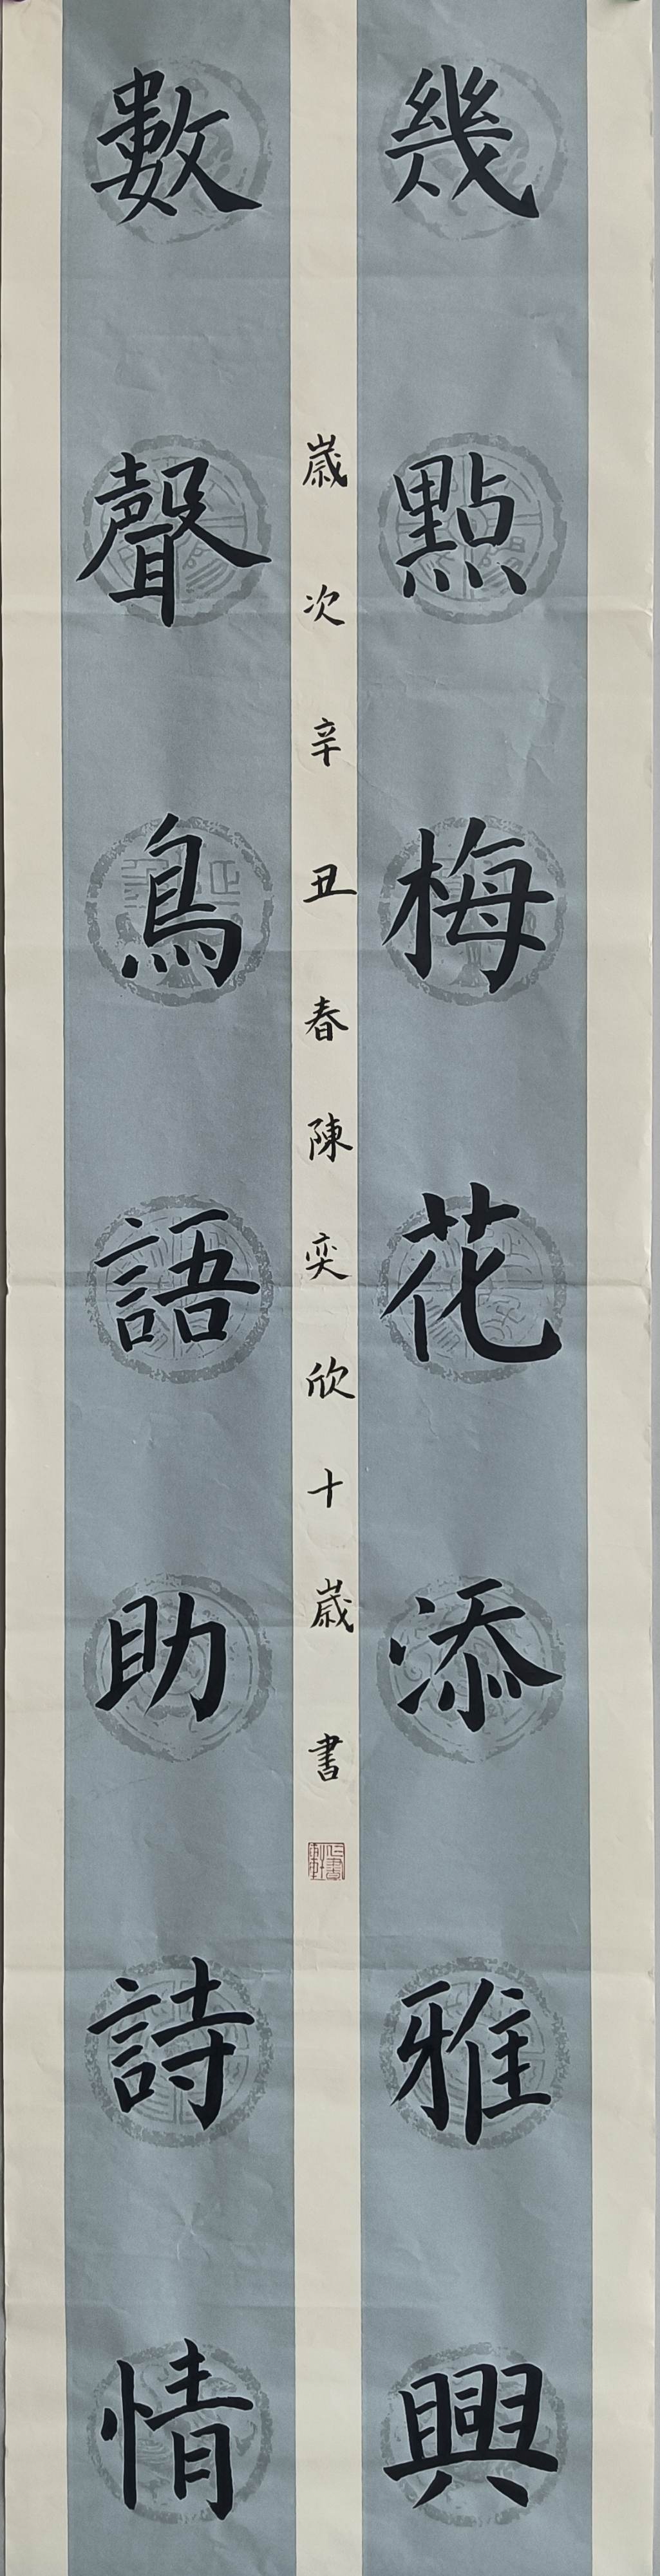 幾點梅花添雅興
歲次辛丑春陳奕欣十歲書
數聲鳥語助詩情